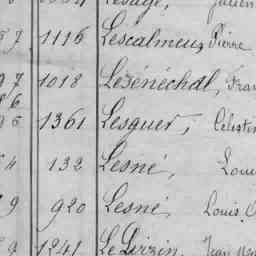 Lesage, Julien
57 1116 Lescalmeus, Pierre
97 1018 Lesénéchal, Fran
86
95 1361 Lesguer, Célestin
54 132 Lesné, Loui
920 Lesné, Louis
1241 Le Dirzin, Jean